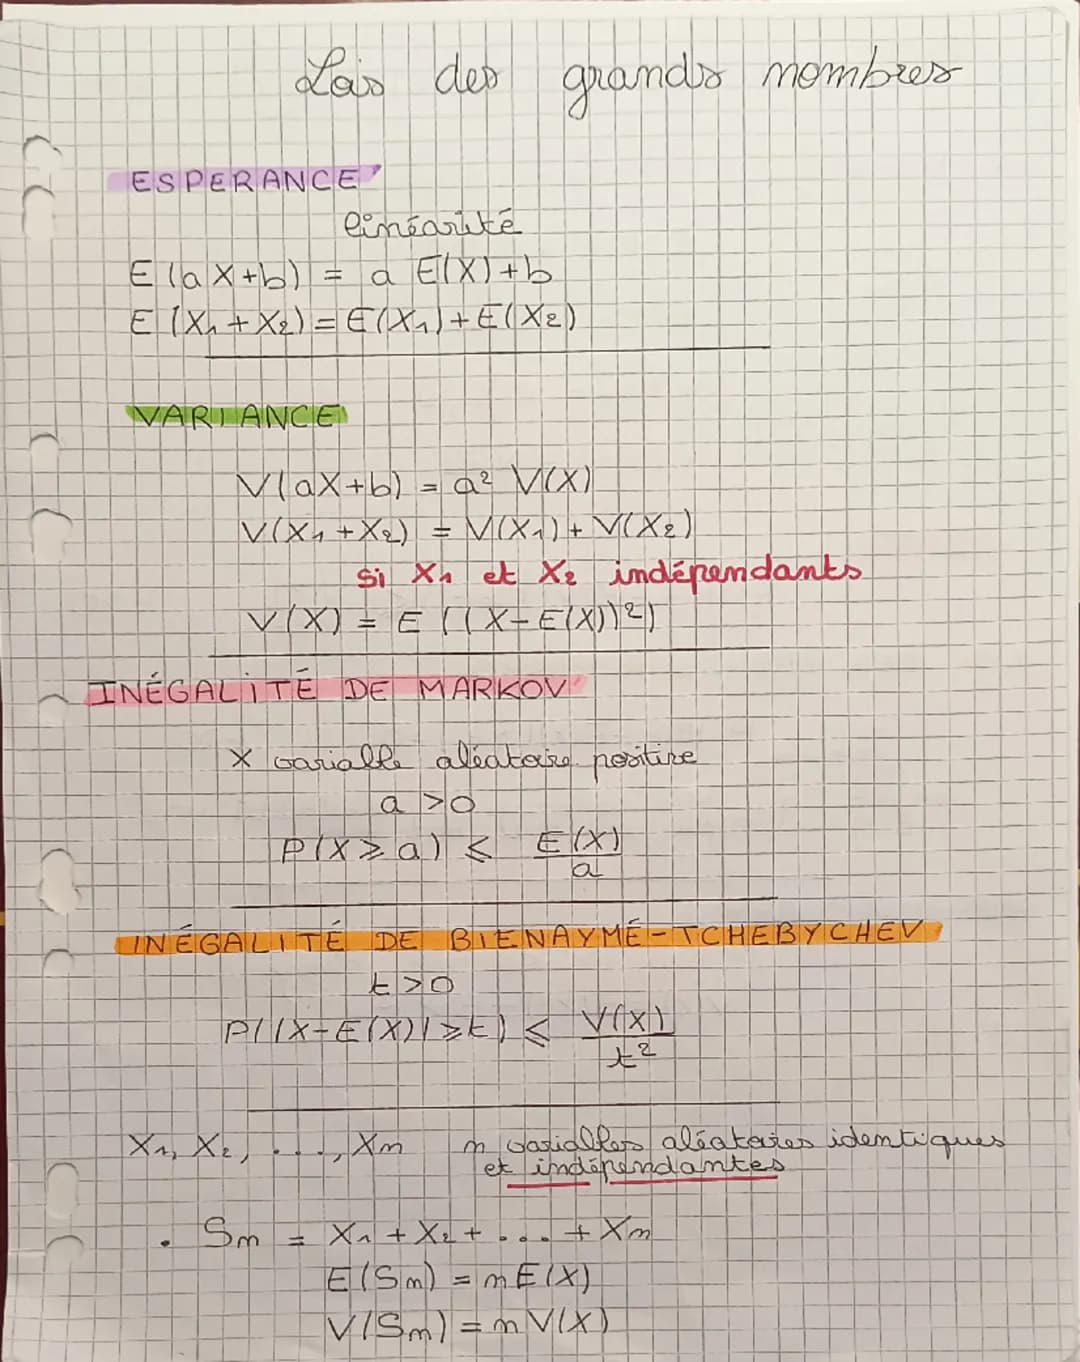 Lois des grands nombres
ESPERANCE
linéarité
E(aX+b) = a E(X)+b
E(X₁+X₂) = E(X₁)+E(X₂)
VARIANCE
V(aX+b) = a² V(X)
V(X₁+X₂) = V(X₁)+V(X₂)
si X₁ et X₂ indépendants
V(X) = E((X-E(X))²)
INÉGALITÉ DE MARKOV
X variable aléatoire positive
a >0
P(X≥a) ≤ E(X)/a
INÉGALITÉ DE BIENAYMÉ-TCHEBYCHEV
t>0
P(|X-E(X)|≥t) ≤ V(X)/t²
X₁, X₂, ..., Xn n variables aléatoires identiques
et indépendantes
• Sn = X₁+X₂+...+Xn
E(Sn) = nE(X)
V(Sn) = nV(X)